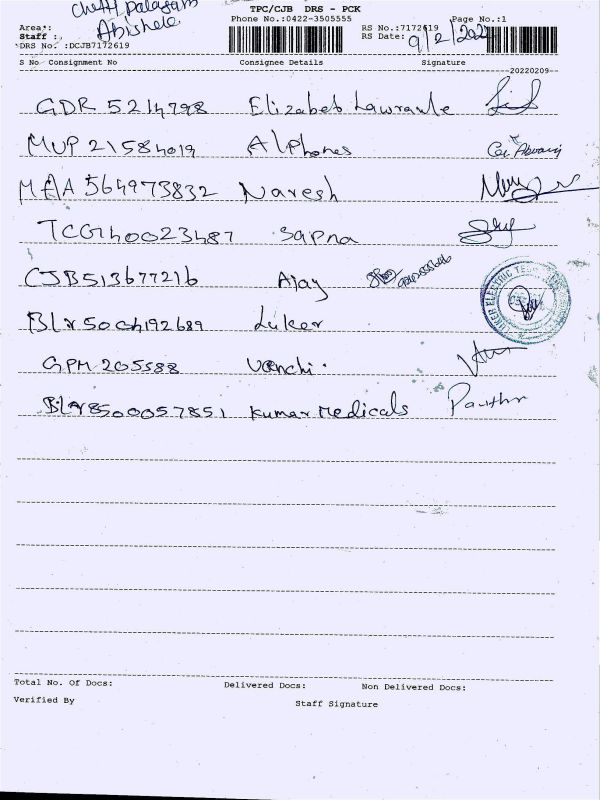 Chetti palayam
TPC/CJB DRS - PCK
Phone No.:0422-3505555
Page No.:1
Area:
Staff :
RS No.:7172619
RS Date: 9/2/202
DRS No. :DCJB7172619
S No Consignment No Consignee Details Signature
20220209
GDR 5214798 Elizabeb Lawrante
MUP 21584019 Alphones
MAA 564973832 Naresh
TCG140023487 Sapna
CJB513677216 Ajay
Blr50Ch192689 Luker
ELECTRIC
GPM 205588 Vanchi
Blr8500057851 Kumar Medicals
Total No. Of Docs: Delivered Docs: Non Delivered Docs:
Verified By Staff Signature